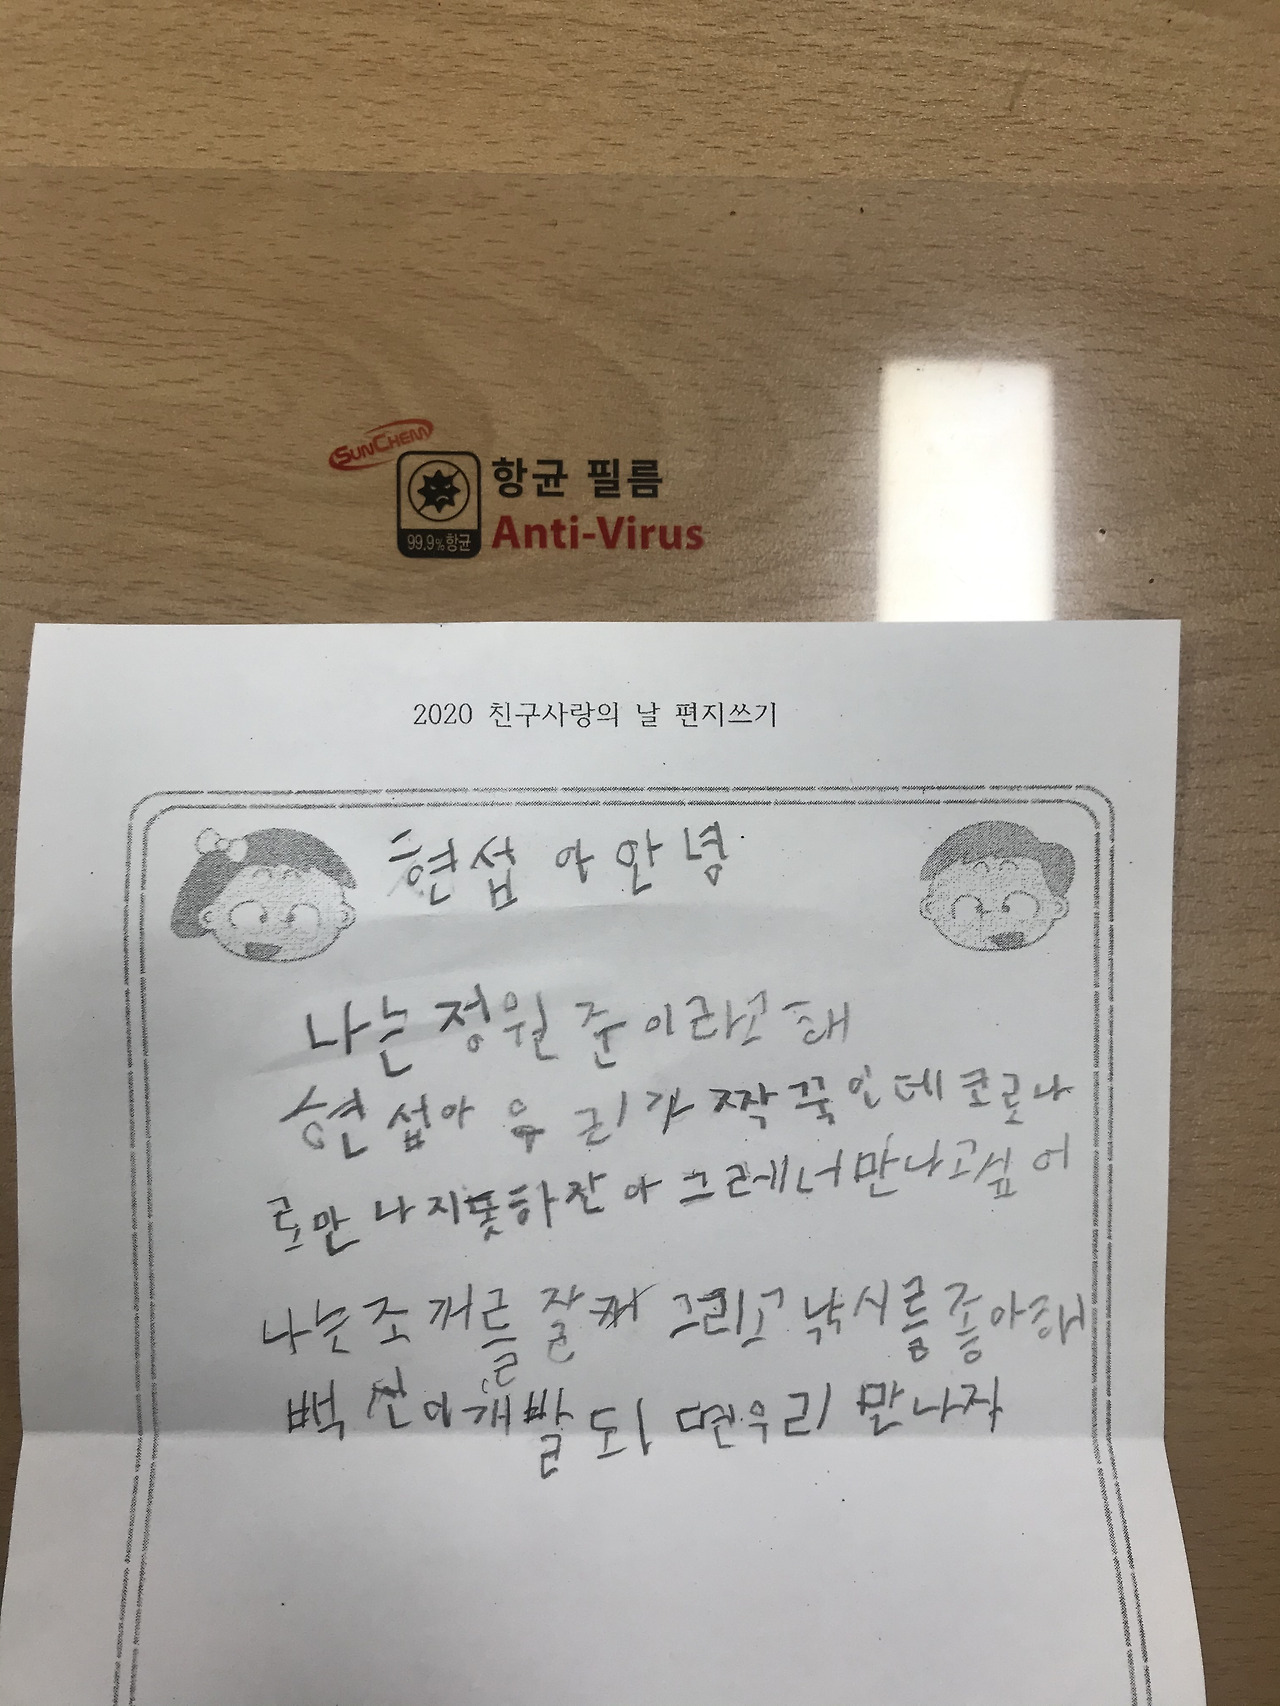 SUNCHEM
항균 필름
99.9%항균
Anti-Virus
2020 친구사랑의 날 편지쓰기
현섭아 안녕
나는 정원준이라고 해
현섭아 우리가 짝꾹인데 코로나
로 만나지 못하잔아 그레너 만나고 싶어
나는 조꺼를 잘 그리고 낚시름 좋아해
백신이 개발 되 면 우리 만나자